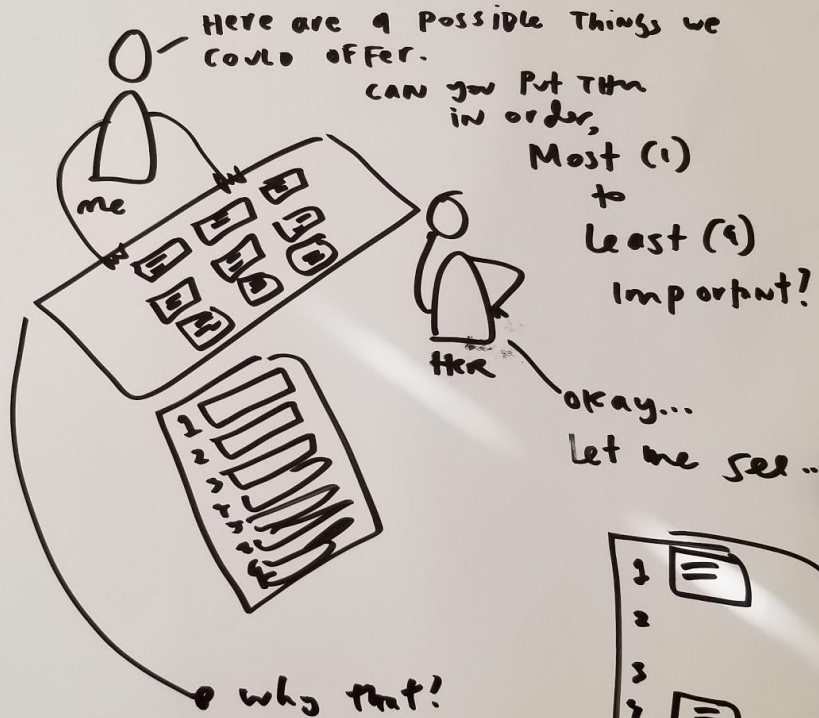 Here are 9 Possible Things we
Could offer.
CAN you Put Them
in order,
Most (1)
to
Least (9)
Important?
me
Here
okay...
Let me see..
1
2
3
1
2
3
4
why that?